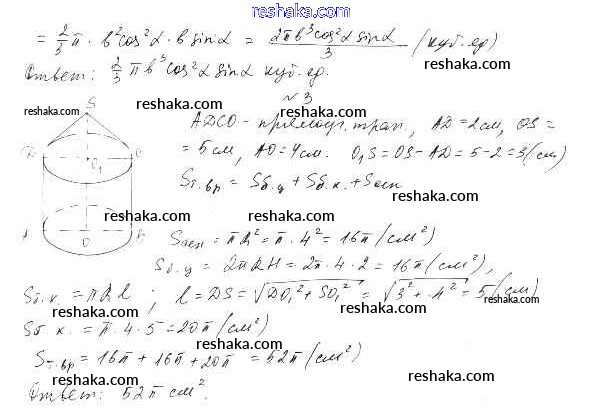 reshaka.com
= 2/3 π · b² cos² α · b sin α = 2πb³ cos² α sin α / 3 (куб. ед)
Ответ: 2/3 π b³ cos² α sin α куб. ед.
reshaka.com reshaka.com
№ 3
reshaka.com S reshaka.com reshaka.com
ADCO - прямоуг. трап, AD = 2 см, OS =
= 5 см, AO = 4 см. O₁S = OS - AD = 5 - 2 = 3 (см)
D O₁ C
reshaka.com reshaka.com
Sт.вр = Sб.ц + Sб.к. + Sосн
reshaka.com reshaka.com
A O B
Sосн = πR² = π · 4² = 16π (см²)
reshaka.com
Sб.ц = 2πRH = 2π · 4 · 2 = 16π (см²),
Sб.к. = πRl ; l = DS = √DO₁² + SO₁² = √3² + 4² = 5 (см)
reshaka.com reshaka.com reshaka.com
Sб.к. = π · 4 · 5 = 20π (см²)
reshaka.com
Sт.вр = 16π + 16π + 20π = 52π (см²)
reshaka.com reshaka.com
Ответ: 52π см².
reshaka.com